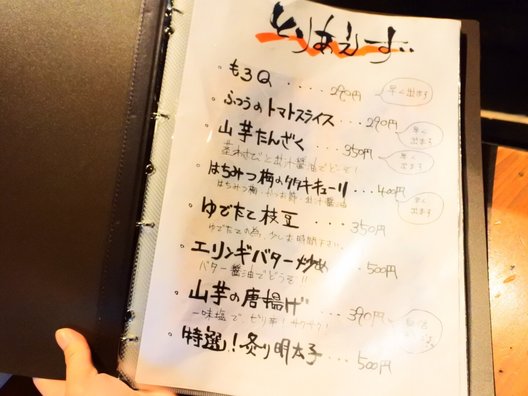 とりあえーず
・もろQ ････ 290円 早く出ます
・ふつうのトマトスライス ･･･290円
・山芋たんざく ････ 350円 早く出ます
出汁醤油でどうぞ！ 早く出ます
・はちみつ梅のタタキキューリ ･･･400円
はちみつ梅・かつお節・出汁醤油 早く出ます
・ゆでたて枝豆 ･･･ 350円
ゆでたての為、少しお時間下さい。
・エリンギバター炒め ･･･500円
バター醤油でどうぞ!!
・山芋の唐揚げ ･･･ 390円
一味塩で、ピリ辛！サクサク！
・特選！炙り明太子 ･･･ 500円